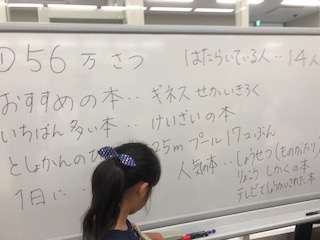 ① 56万さつ
はたらいている人‥14人
おすすめの本‥ギネスせかいきろく
いちばん多い本‥けいざいの本
としょかんのひ
25mプール17こぶん
1日に‥
人気の本‥しょうせつ(ものがたり)
りょうり しゅくの本
テレビでしょうかいされた本